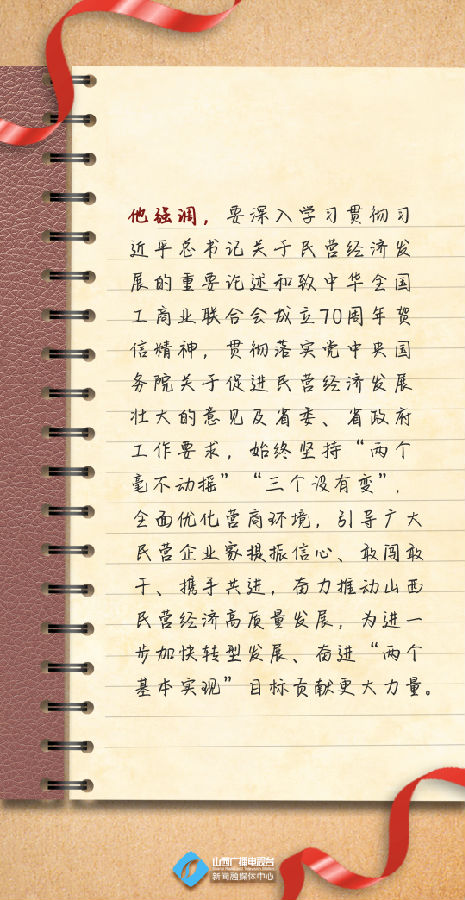 他强调，要深入学习贯彻习
近平总书记关于民营经济发
展的重要论述和致中华全国
工商业联合会成立70周年贺
信精神，贯彻落实党中央国
务院关于促进民营经济发展
壮大的意见及省委、省政府
工作要求，始终坚持“两个
毫不动摇”“三个没有变”，
全面优化营商环境，引导广大
民营企业家提振信心、敢闯敢
干、携手共进，奋力推动山西
民营经济高质量发展，为进一
步加快转型发展、奋进“两个
基本实现”目标贡献更大力量。
山西广播电视台
新闻融媒体中心